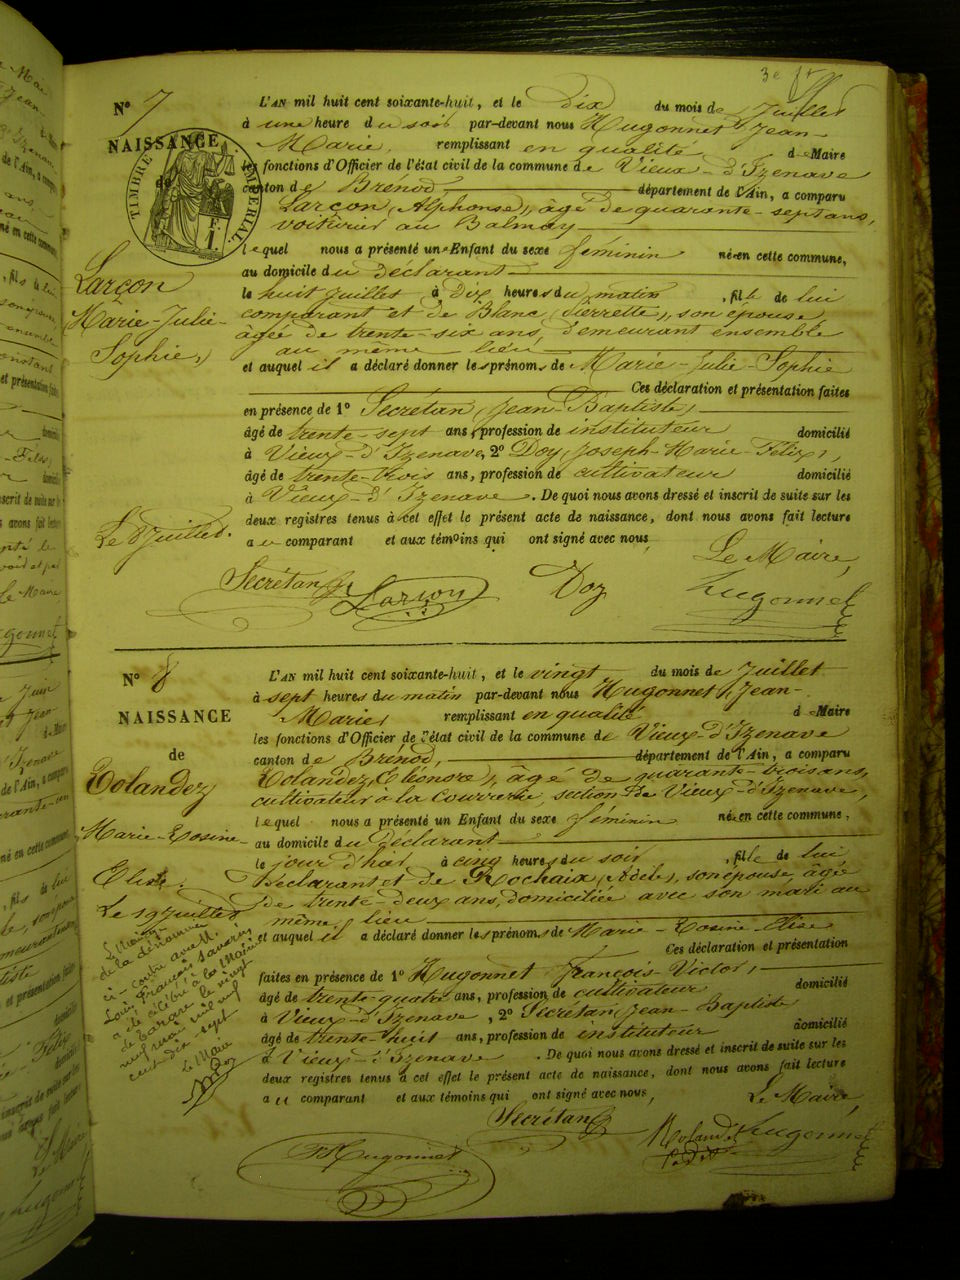 3e ft
N° 7
NAISSANCE
de
TIMBRE IMPERIAL
1 F.
Larçon
Marie-Julie-
Sophie,
Le 8 Juillet.
L'AN mil huit cent soixante-huit, et le dix du mois de Juillet
à une heure du soir par-devant nous Hugonnet, Jean-
Marie, remplissant en qualité de Maire
les fonctions d'Officier de l'état civil de la commune de Vieux-d'Izenave
canton de Brénod département de l'Ain, a comparu
Larçon (Alphonse), âgé de quarante-sept ans,
voiturier au Balmay
lequel nous a présenté un Enfant du sexe féminin née en cette commune,
au domicile du déclarant
le huit Juillet à dix heures du matin, fille de lui
comparant et de Blanc (Pierrette), son épouse
âgée de trente-six ans, demeurant ensemble
au même lieu
et auquel il a déclaré donner les prénoms de Marie-Julie-Sophie
Ces déclaration et présentation faites
en présence de 1° Secrétan, Jean-Baptiste,
âgé de trente-sept ans, profession de instituteur domicilié
à Vieux-d'Izenave, 2° Doy, Joseph-Marie-Félix,
âgé de trente-trois ans, profession de cultivateur domicilié
à Vieux-d'Izenave. De quoi nous avons dressé et inscrit de suite sur les
deux registres tenus à cet effet le présent acte de naissance, dont nous avons fait lecture
au comparant et aux témoins qui ont signé avec nous
Le Maire,
Secrétan Larçon Doy Hugonnet
N° 8
NAISSANCE
de
Rolandez
Marie-Rosine-
Elise.
Le 19 Juillet
de la dénommée
ci-contre avec M.
Louis François
a été célébré à la Mairie
de Tarare le vingt
neuf mai mil neuf
cent dix-sept
Le Maire
L'AN mil huit cent soixante-huit, et le vingt du mois de Juillet
à sept heures du matin par-devant nous Hugonnet, Jean-
Marie, remplissant en qualité de Maire
les fonctions d'Officier de l'état civil de la commune de Vieux-d'Izenave
canton de Brénod, département de l'Ain, a comparu
Rolandez, (Eléonore), âgé de quarante-trois ans,
cultivateur à la Courrerie, section de Vieux-d'Izenave,
lequel nous a présenté un Enfant du sexe féminin née en cette commune,
au domicile du déclarant
le jour d'hier à cinq heures du soir, fille de lui
déclarant et de Rochaix (Adèle), son épouse, âgée
de trente-deux ans, domiciliée avec son mari au
même lieu
et auquel il a déclaré donner les prénoms de Marie-Rosine-Elise
Ces déclaration et présentation
faites en présence de 1° Hugonnet François-Victor,
âgé de trente-quatre ans, profession de cultivateur domicilié
à Vieux-d'Izenave, 2° Secrétan, Jean-Baptiste
âgé de trente-huit ans, profession de instituteur domicilié
à Vieux-d'Izenave. De quoi nous avons dressé et inscrit de suite sur les
deux registres tenus à cet effet le présent acte de naissance, dont nous avons fait lecture
au comparant et aux témoins qui ont signé avec nous,
Le Maire,
Secrétan
F. Hugonnet Rolandez Hugonnet